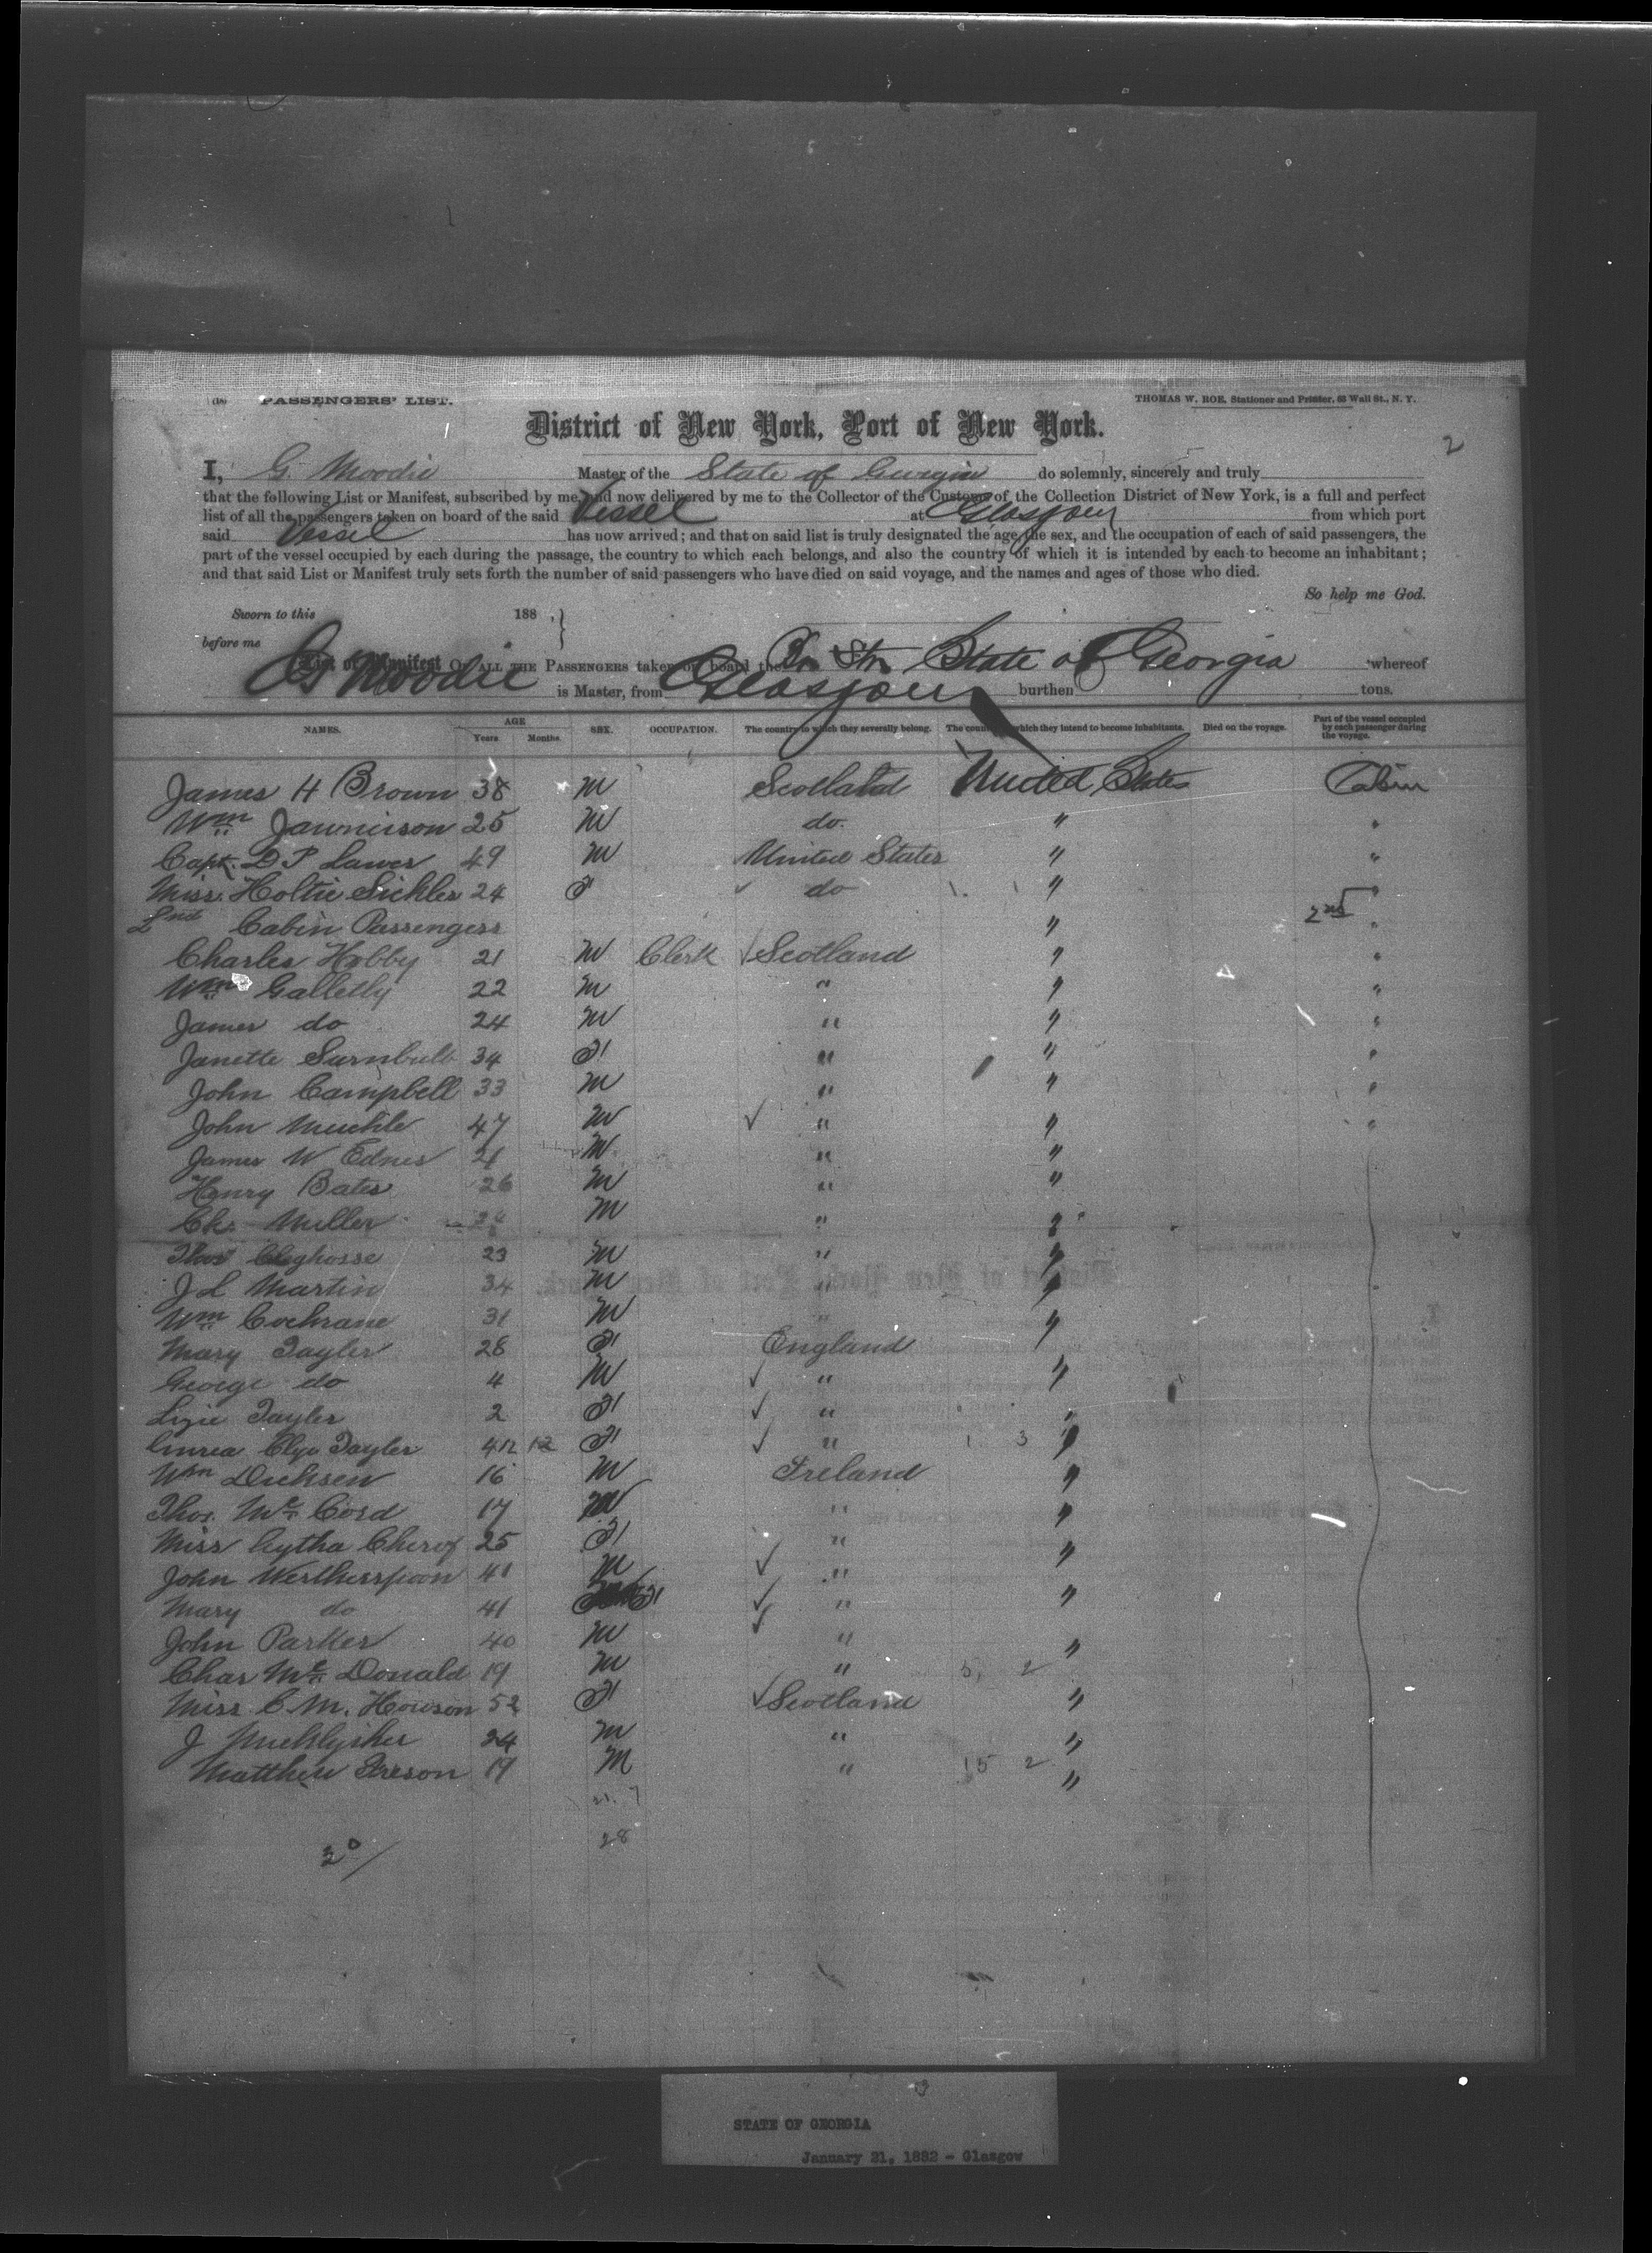 PASSENGERS' LIST.
THOMAS W. ROE, Stationer and Printer, 85 Wall St., N. Y.
District of New York, Port of New York.
2
I, G. Moodie Master of the State of Georgia do solemnly, sincerely and truly
that the following List or Manifest, subscribed by me, and now delivered by me to the Collector of the Customs of the Collection District of New York, is a full and perfect
list of all the passengers taken on board of the said Vessel at Glasgow from which port
said Vessel has now arrived; and that on said list is truly designated the age, the sex, and the occupation of each of said passengers, the
part of the vessel occupied by each during the passage, the country to which each belongs, and also the country of which it is intended by each to become an inhabitant;
and that said List or Manifest truly sets forth the number of said passengers who have died on said voyage, and the names and ages of those who died.
So help me God.
Sworn to this 188 .
before me
List or Manifest OF ALL THE PASSENGERS taken on board the Br Str State of Georgia whereof
G Moodie is Master, from Glasgow burthen tons.
NAMES. AGE Years Months. SEX. OCCUPATION. The country to which they severally belong. The country which they intend to become inhabitants. Died on the voyage. Part of the vessel occupied by each passenger during the voyage.
James H Brown 38 M Scotland United States Cabin
Wm 25 M do. " "
Capt. D P Lawes 49 M United States " "
Miss Holtie Sickler 24 F do " "
2nd Cabin Passengers " 2nd "
Charles Hobby 21 M Clerk Scotland " "
Wm Galletly 22 M " " "
James do 24 M " " "
Janette Turnbull 34 F " " "
John Campbell 33 M " " "
John 47 M " " "
James W Ednes 21 M " "
Henry Bates 26 M " "
Chs Miller M " "
Thos 23 M " "
J L Martin 34 M " "
Wm Cochrane 31 M " "
Mary Tayler 28 F England
George do 4 M " "
Lizie Tayler 2 F " "
Tayler 12 F " "
Wm Dicksen 16 M Ireland "
Thos. Mc Cord 17 M " "
Miss 25 F " "
John Wertherspoon 41 M "
Mary do 41 F " "
John Parker 40 M " "
Chas Mc Donald 19 M "
Miss C. M. Howson 52 F Scotland "
J 24 M " "
Matthew 19 M " 15 2 "
28
STATE OF GEORGIA
January 21, 1882 - Glasgow